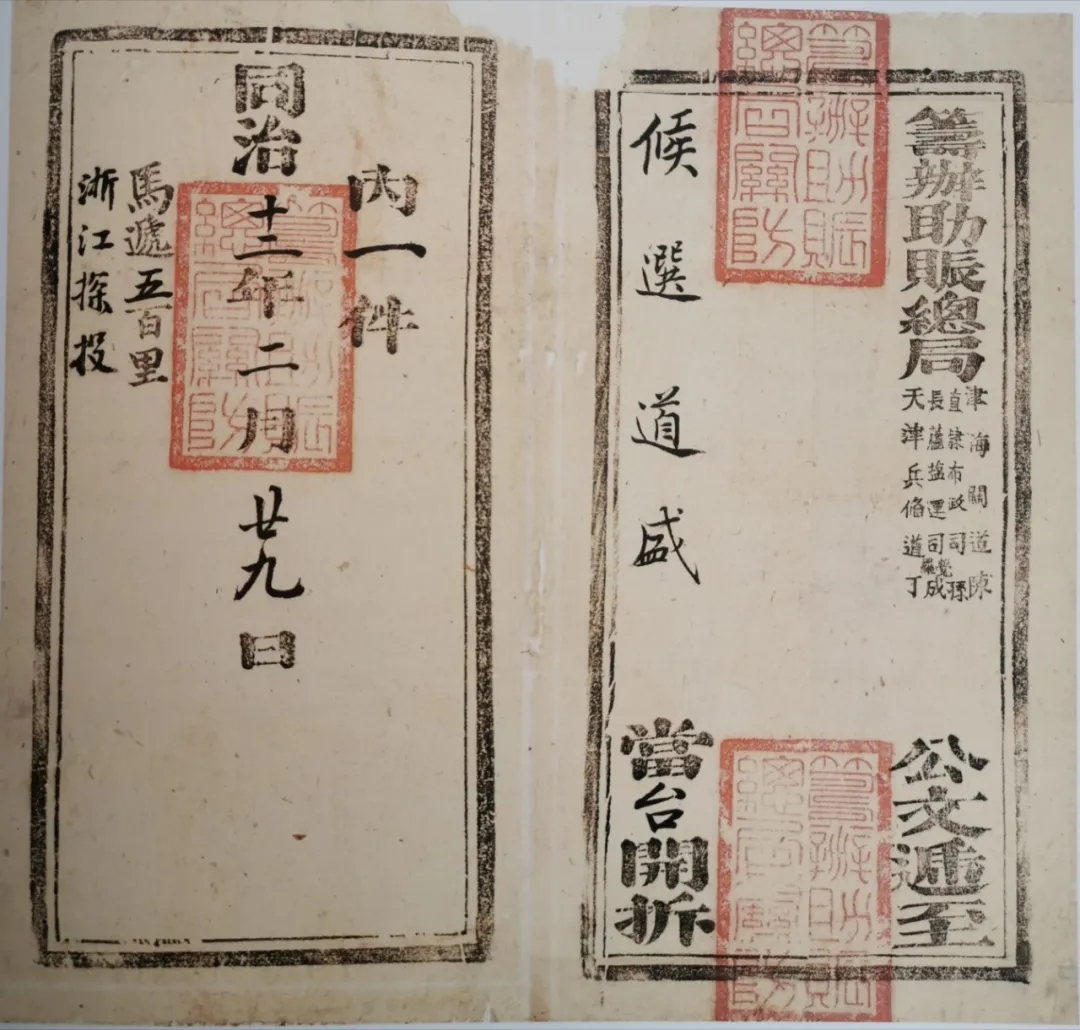 籌辦助賑總局
津海關道陳
直隸布政司孫
長蘆鹽運司成
天津兵偹道丁
公文遞至
候選道盛
當台開拆
籌辦助賑
總局關防
內一件
同治十二年二月廿九日
馬遞五百里
浙江探投